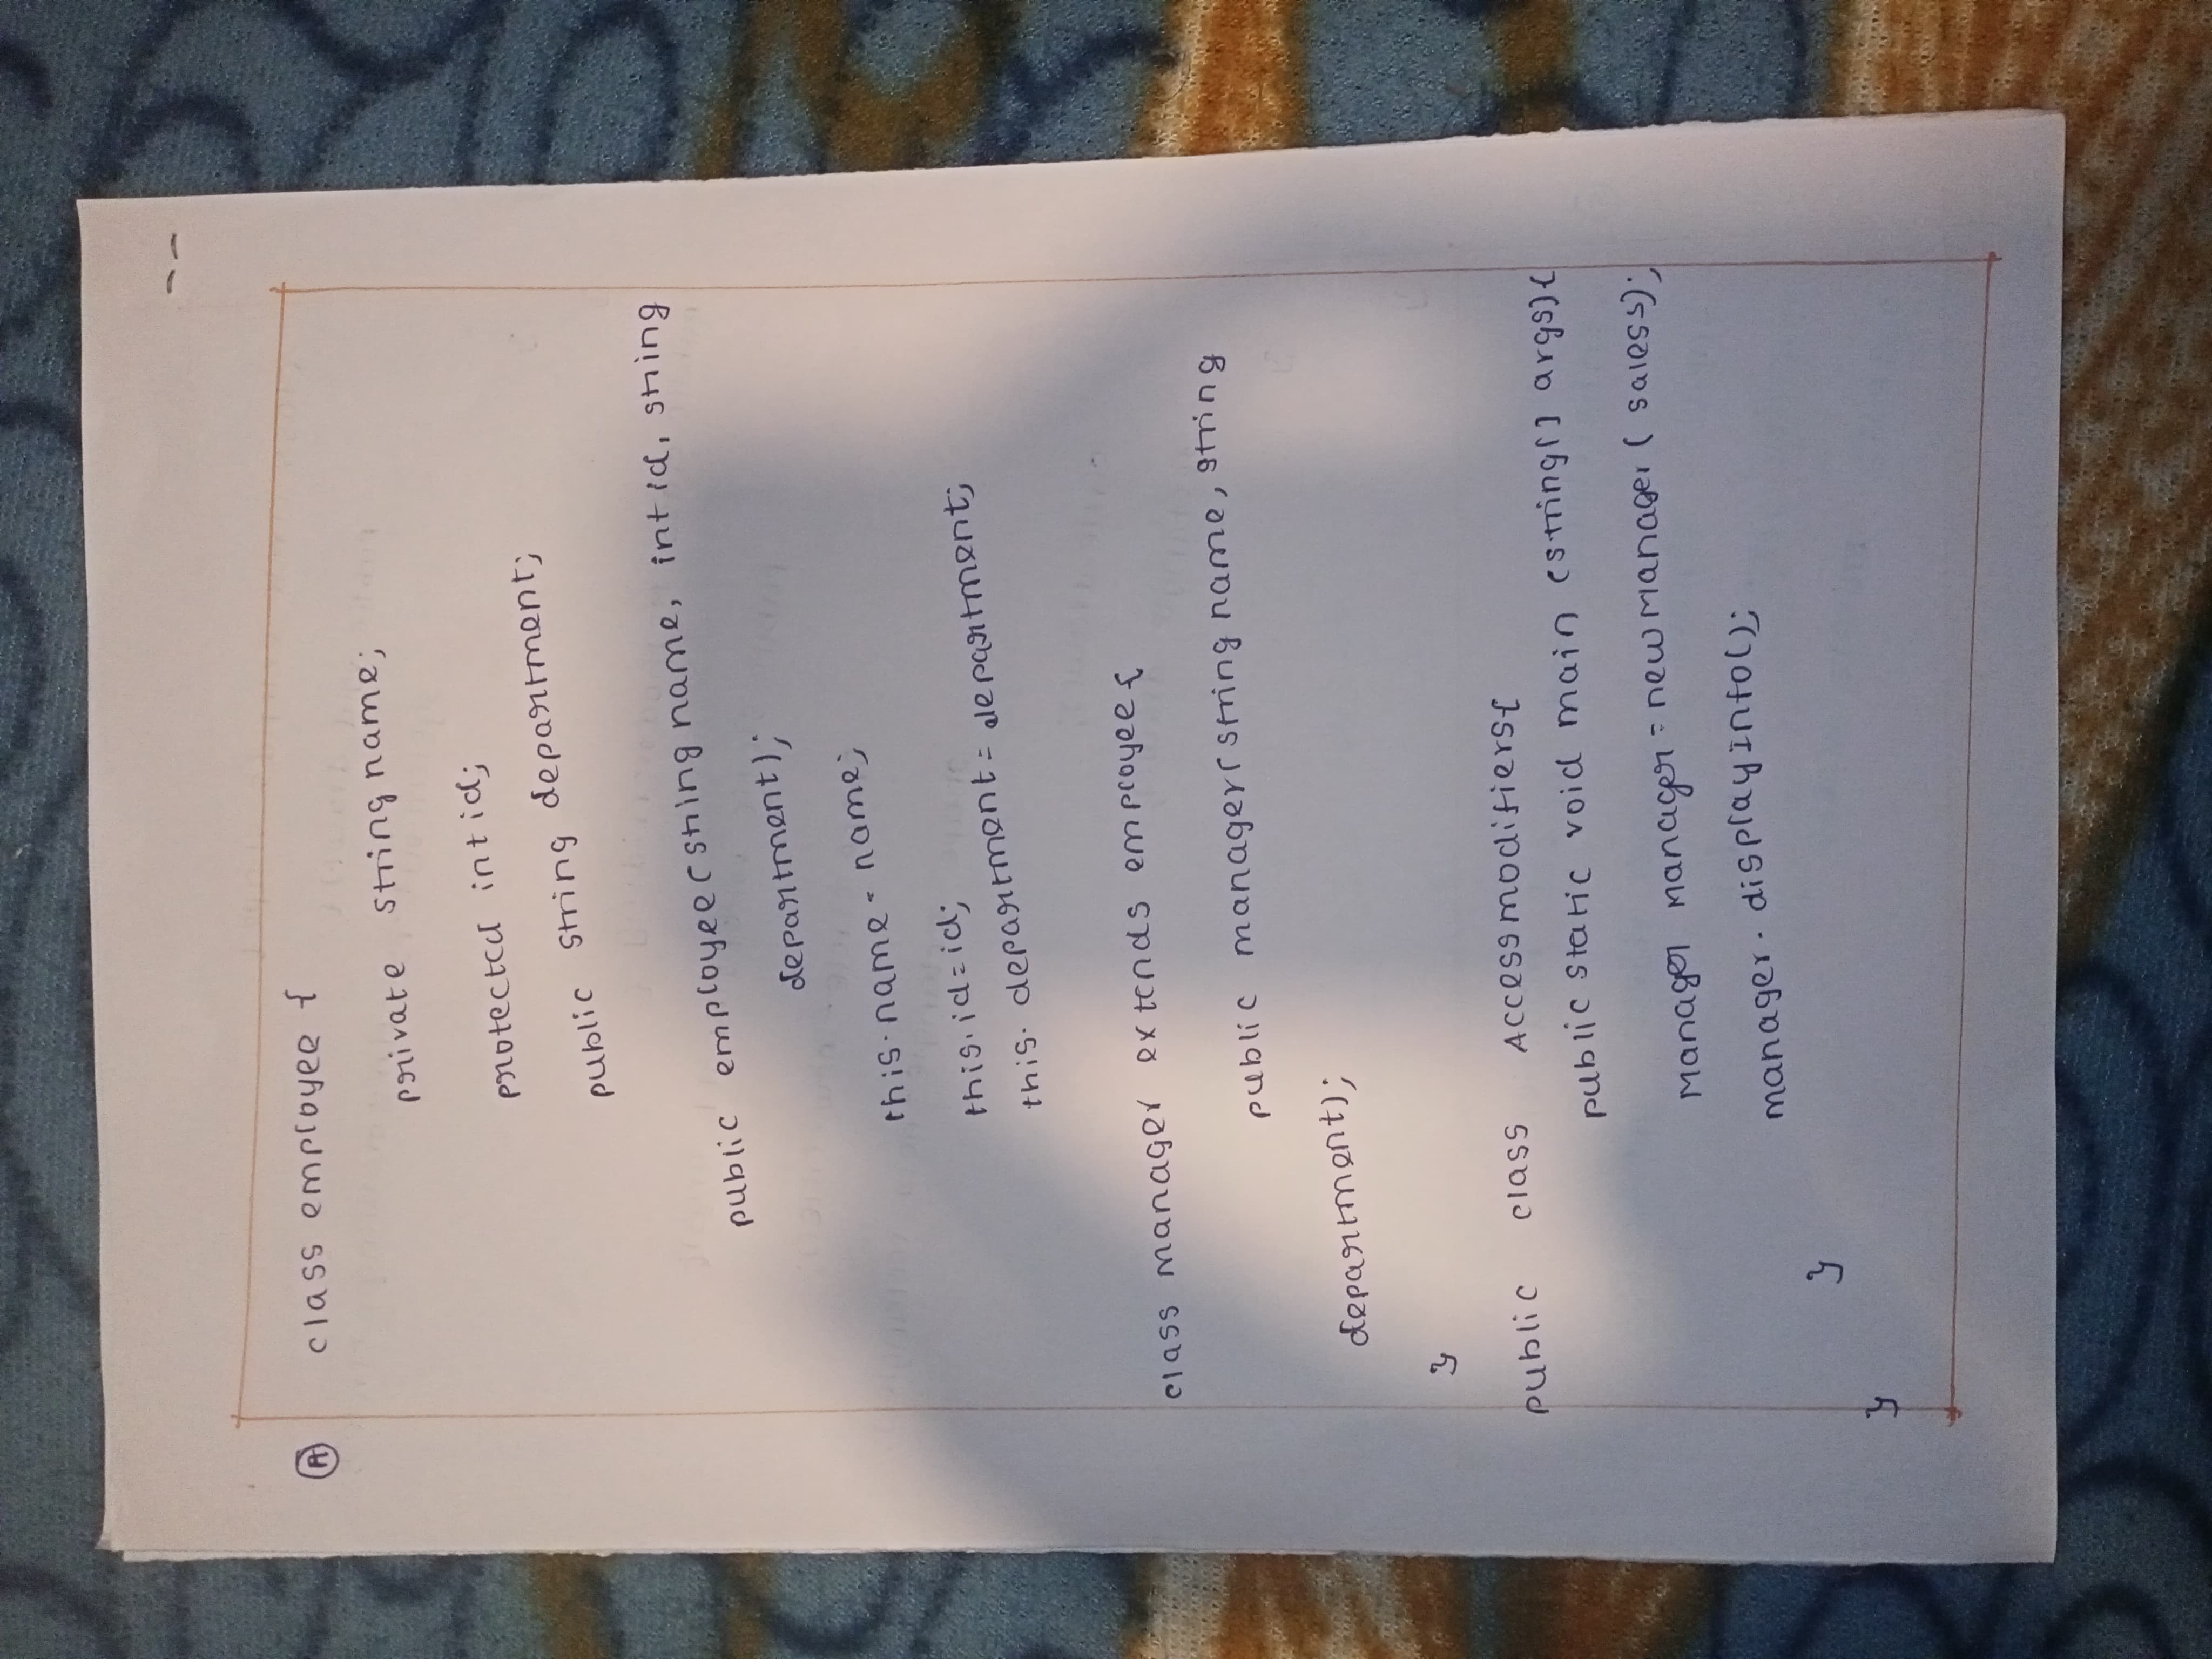 A class employee {
private string name;
protected int id;
public string department;
public employee (string name, int id, string
department);
this.name = name;
this.id = id;
this.department = department;
class manager extends employee {
public manager (string name, string
department);
}
public class Accessmodifiers{
public static void main (string[] args){
Manager manager = new Manager (saless);
manager.displayInfo();
}
}